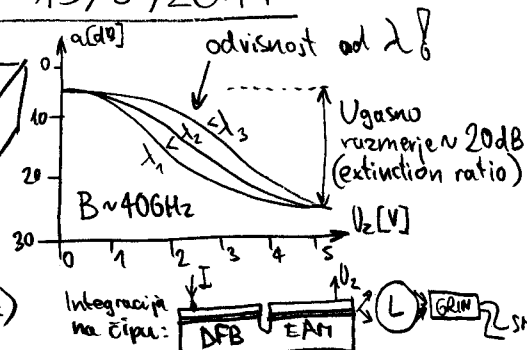 13/5/2014
a[dB]
odvisnost od λ!
0
10
20
30
λ1 < λ2 < λ3
Ugasno
razmerje ~ 20dB
(extinction ratio)
B~40GHz
0 1 2 3 4 5
Uz[V]
I
Uz
Integracija
na čipu:
DFB EAM L GRIN